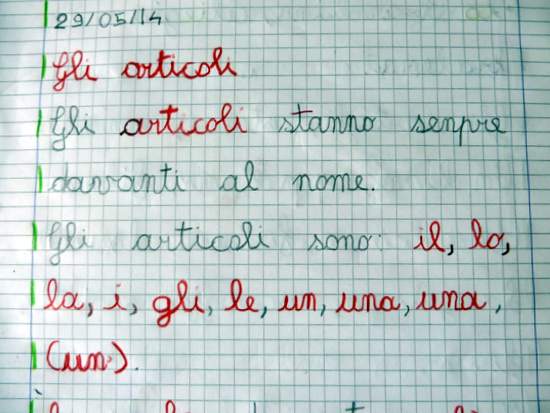 29/05/14
Gli articoli
Gli articoli stanno senpre
davanti al nome.
Gli articoli sono: il, lo,
la, i, gli, le, un, una, una,
(un').